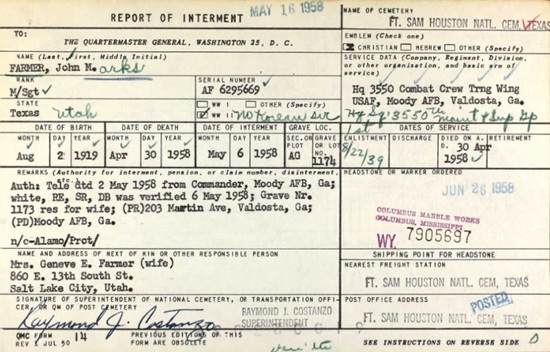 REPORT OF INTERMENT
MAY 16 1958
NAME OF CEMETERY
FT. SAM HOUSTON NATL. CEM, TEXAS
TO:
THE QUARTERMASTER GENERAL, WASHINGTON 25, D. C.
EMBLEM (Check one)
CHRISTIAN HEBREW OTHER (Specify)
NAME (Last, First, Middle Initial)
FARMER, John M. arks
SERVICE DATA (Company, Regiment, Division, or other organization, and basic arm of service)
Hq 3550 Combat Crew Trng Wing
USAF, Moody AFB, Valdosta, Ga.
RANK
M/Sgt
SERIAL NUMBER
AF 6295669
STATE
Texas Utah
WW I OTHER (Specify)
WW II No Korean svc
Hq Sq 3550th
DATE OF BIRTH
DATE OF DEATH
DATE OF INTERMENT
GRAVE LOC.
DATES OF SERVICE
MONTH DAY YEAR MONTH DAY YEAR MONTH DAY YEAR
Aug 2 1919 Apr 30 1958 May 6 1958
AG 1174
ENLISTMENT DISCHARGE DIED ON A.D. RETIREMENT
8/22/39
30 Apr 1958
REMARKS (Authority for interment, pension, or claim number, disinterment,
Auth: Tele dtd 2 May 1958 from Commander, Moody AFB, Ga;
white, RE, SR, DB was verified 6 May 1958; Grave Nr.
1173 res for wife; (PR)203 Martin Ave, Valdosta, Ga;
(PD)Moody AFB, Ga.
n/c-Alamo/Prot/
HEADSTONE OR MARKER ORDERED
JUN 26 1958
COLUMBUS MARBLE WORKS
COLUMBUS, MISSISSIPPI
WY 7905697
SHIPPING POINT FOR HEADSTONE
NAME AND ADDRESS OF NEXT OF KIN OR OTHER RESPONSIBLE PERSON
Mrs. Geneve E. Farmer (wife)
860 E. 13th South St.
Salt Lake City, Utah.
NEAREST FREIGHT STATION
FT. SAM HOUSTON NATL. CEM, TEXAS
SIGNATURE OF SUPERINTENDENT OF NATIONAL CEMETERY, OR TRANSPORTATION OFFICER OR QM OF POST CEMETERY
Raymond J. Costanzo
RAYMOND J. COSTANZO
SUPERINTENDENT
POST OFFICE ADDRESS
POSTED
FT. SAM HOUSTON NATL. CEM, TEXAS
QMC FORM 14
REV 1 JUL 50
PREVIOUS EDITIONS OF THIS FORM ARE OBSOLETE
SEE INSTRUCTIONS ON REVERSE SIDE